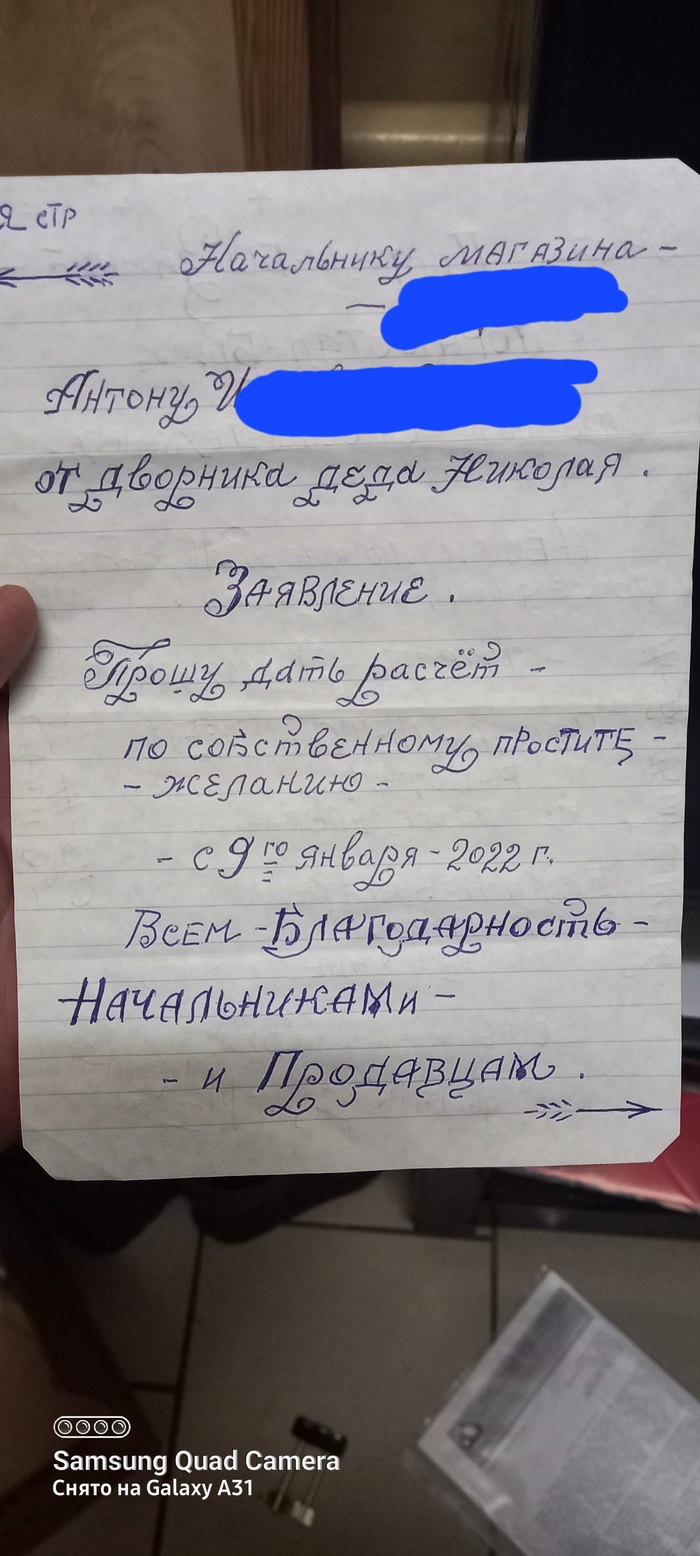 я стр
Начальнику магазина -
-
Антону И
от дворника деда Николая .
Заявление .
Прошу дать расчёт -
по собственному простите -
- желанию -
- с 9го января - 2022 г.
Всем - Благодарность -
Начальниками -
- и Продавцам .
Samsung Quad Camera
Снято на Galaxy A31